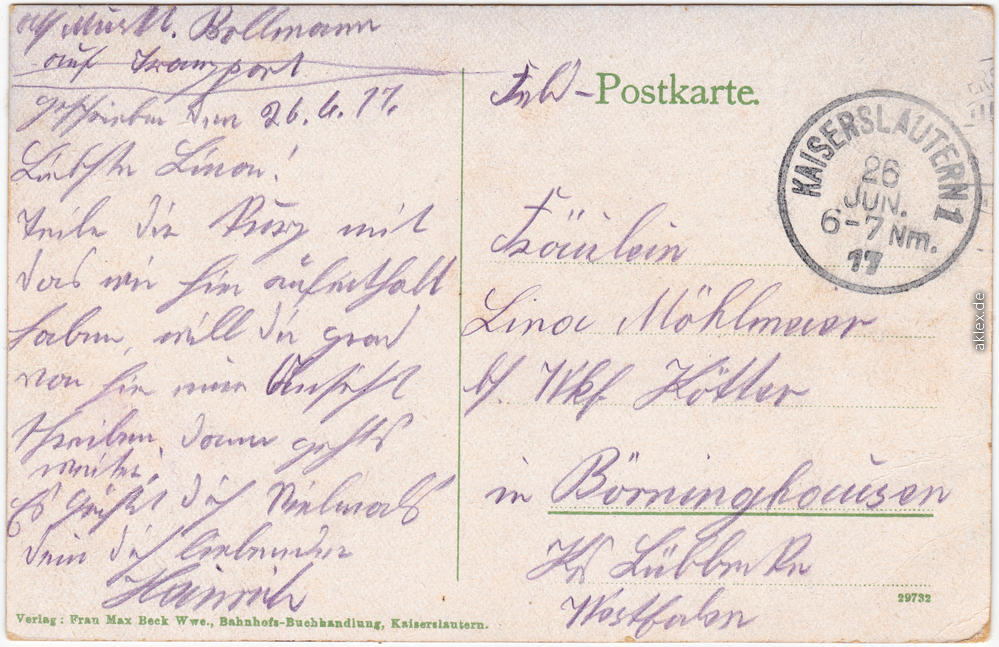 Abs. Muskt. Bollmann
auf Transport
geschrieben den 26.6.17.
Liebste Lina!
Teile dir kurz mit
das wir hier aufenthalt
haben, will dir grad
von hir eine Ansicht
schreiben, dann gehts
weiter.
Es grüßt dich vielmals
dein dich liebender
Heinrich
Verlag: Frau Max Beck Wwe., Bahnhofs-Buchhandlung, Kaiserslautern.
Feld-Postkarte.
KAISERSLAUTERN 1
26
JUN.
6-7 Nm.
17
Fräulein
Lina Möhlmeier
bei Wkf. Kötter
in Börninghausen
Krs Lübbecke
Westfalen
29732
aklex.de